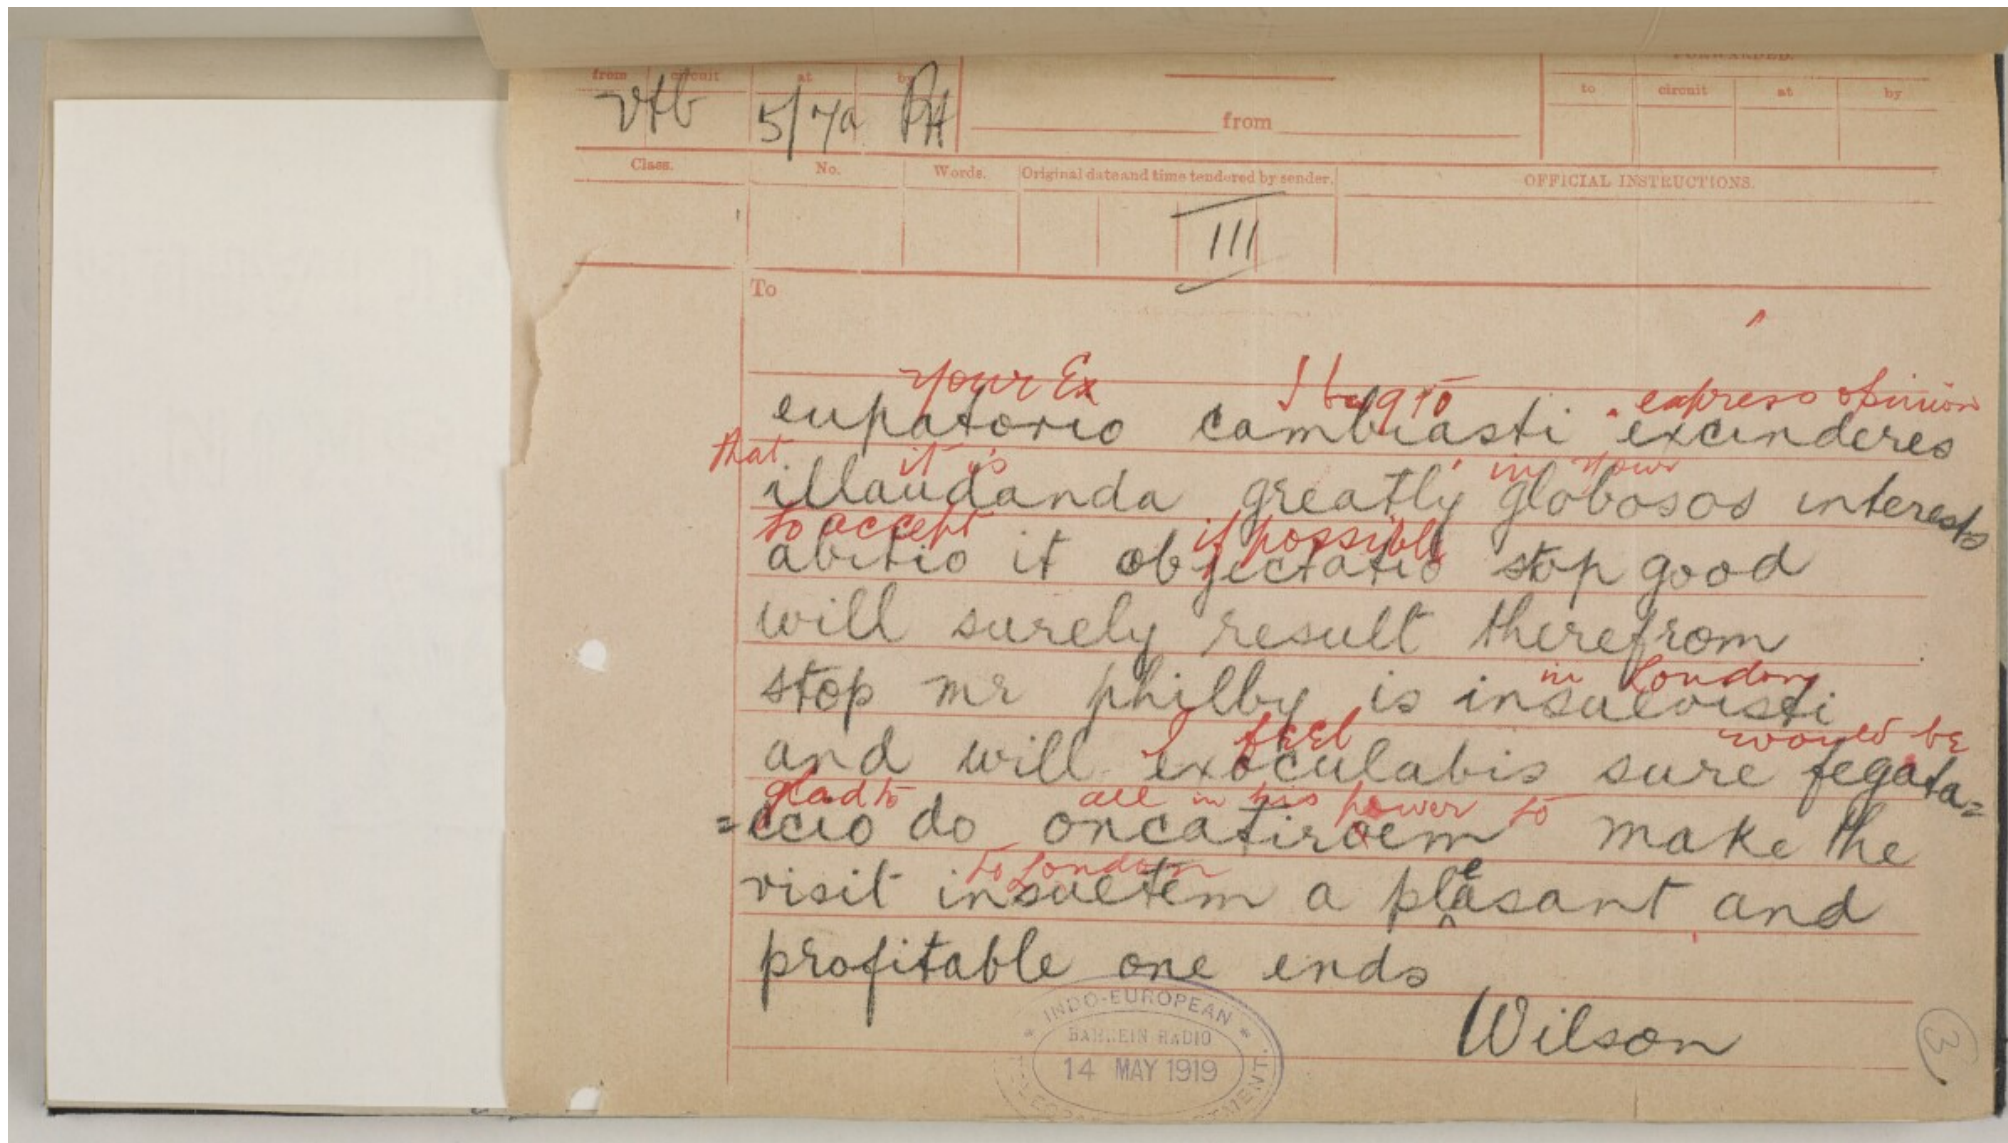 FORWARDED.
from circuit at by
to circuit at by
vtb 5/7a PH
from
Class. No. Words. Original date and time tendered by sender. OFFICIAL INSTRUCTIONS.
III
To
your Ex I beg to express opinion
eupatorio cambiasti excinderes
that it is in your
illaudanda greatly globosos interests
to accept if possible
abitio it objectatio stop good
will surely result therefrom
in London
stop mr philby is insuevisti
I feel would be
and will exoculabis sure fegata=
glad to all in his power to
=ccio do oncatiroem make the
to London
visit insuetem a pleasant and
profitable one ends
Wilson
INDO-EUROPEAN
BAHREIN RADIO
14 MAY 1919
3